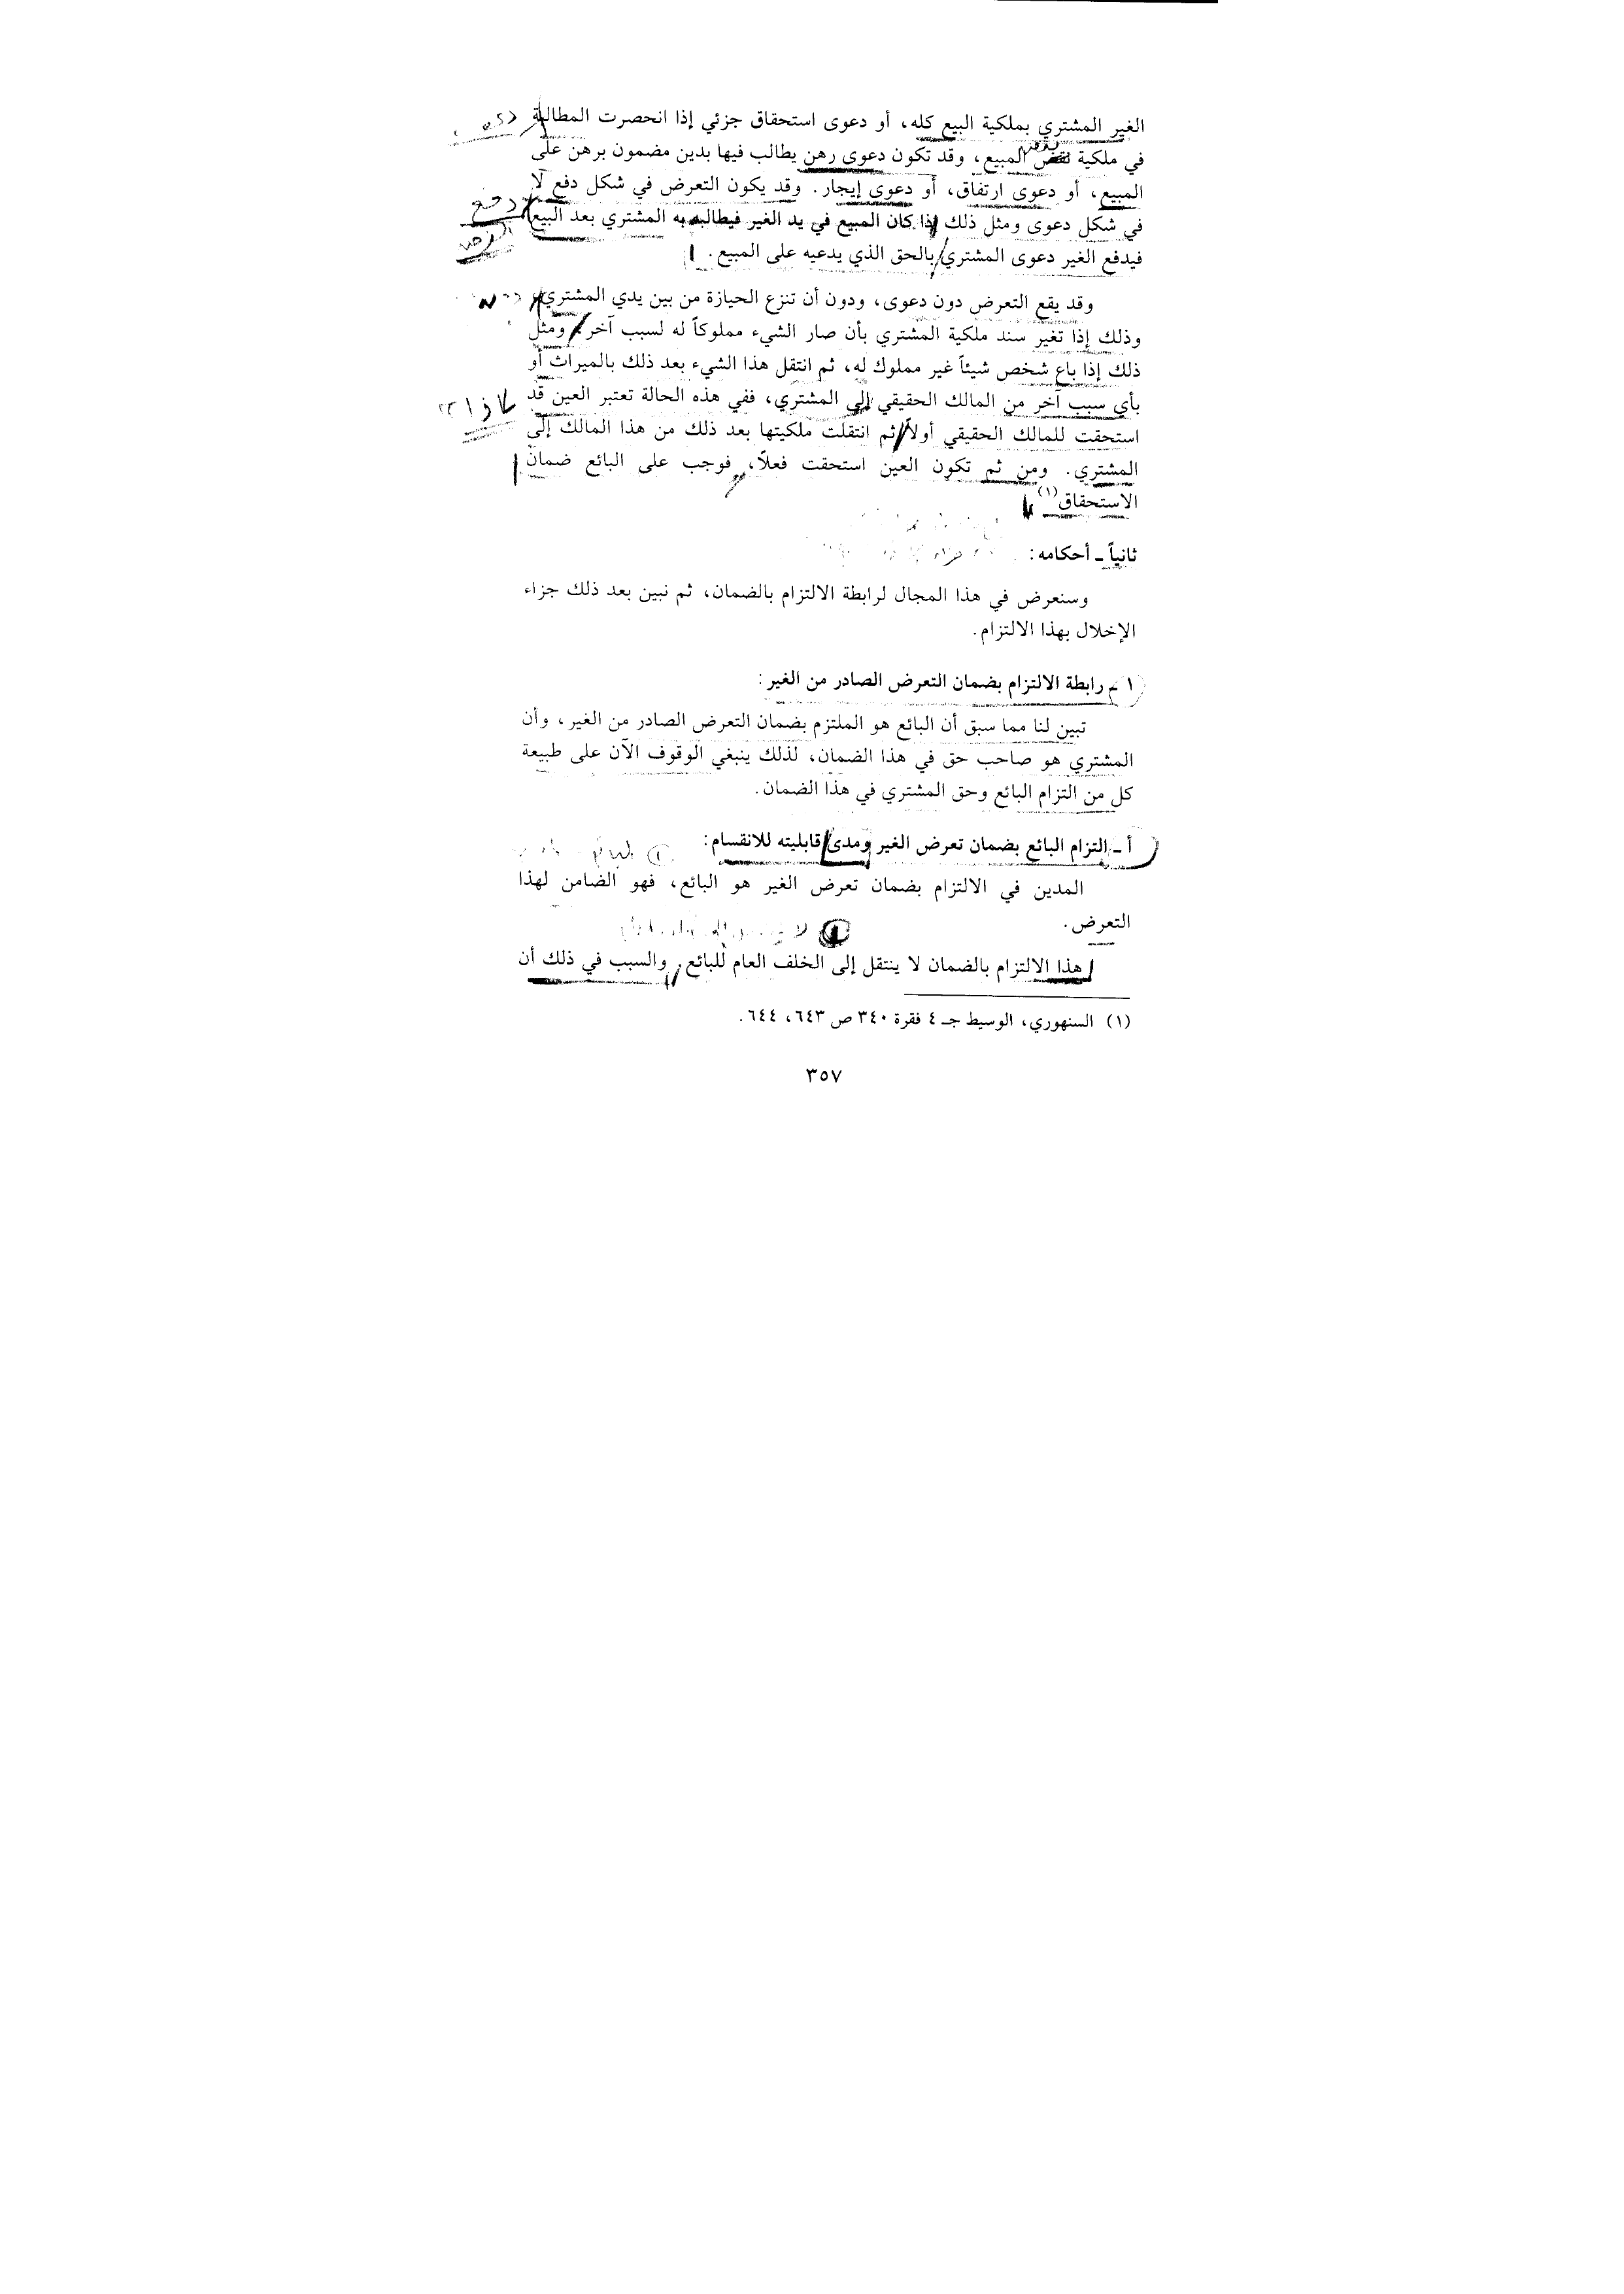 الغير المشتري بملكية البيع كله، أو دعوى استحقاق جزئي إذا انحصرت المطالبة
في ملكية المبيع، وقد تكون دعوى رهن يطالب فيها بدين مضمون برهن على
المبيع، أو دعوى ارتفاق، أو دعوى إيجار. وقد يكون التعرض في شكل دفع لا
في شكل دعوى ومثل ذلك إذا كان المبيع في يد الغير فيطالبه به المشتري بعد البيع
فيدفع الغير دعوى المشتري بالحق الذي يدعيه على المبيع.
وقد يقع التعرض دون دعوى، ودون أن تنزع الحيازة من بين يدي المشتري
وذلك إذا تغير سند ملكية المشتري بأن صار الشيء مملوكاً له لسبب آخر، ومثل
ذلك إذا باع شخص شيئاً غير مملوك له، ثم انتقل هذا الشيء بعد ذلك بالميراث أو
بأي سبب آخر من المالك الحقيقي إلى المشتري، ففي هذه الحالة تعتبر العين قد
استحقت للمالك الحقيقي أولاً ثم انتقلت ملكيتها بعد ذلك من هذا المالك إلى
المشتري. ومن ثم تكون العين استحقت فعلاً، فوجب على البائع ضمان
الاستحقاق(١)
ثانياً ـ أحكامه:
وسنعرض في هذا المجال لرابطة الالتزام بالضمان، ثم نبين بعد ذلك جزاء
الإخلال بهذا الالتزام.
١ ـ رابطة الالتزام بضمان التعرض الصادر من الغير:
تبين لنا مما سبق أن البائع هو الملتزم بضمان التعرض الصادر من الغير، وأن
المشتري هو صاحب حق في هذا الضمان، لذلك ينبغي الوقوف الآن على طبيعة
كل من التزام البائع وحق المشتري في هذا الضمان.
أ ـ التزام البائع بضمان تعرض الغير ومدى قابليته للانقسام:
المدين في الالتزام بضمان تعرض الغير هو البائع، فهو الضامن لهذا
التعرض.
هذا الالتزام بالضمان لا ينتقل إلى الخلف العام للبائع. والسبب في ذلك أن
(١) السنهوري، الوسيط جـ ٤ فقرة ٣٤٠ ص ٦٤٣، ٦٤٤.
٣٥٧